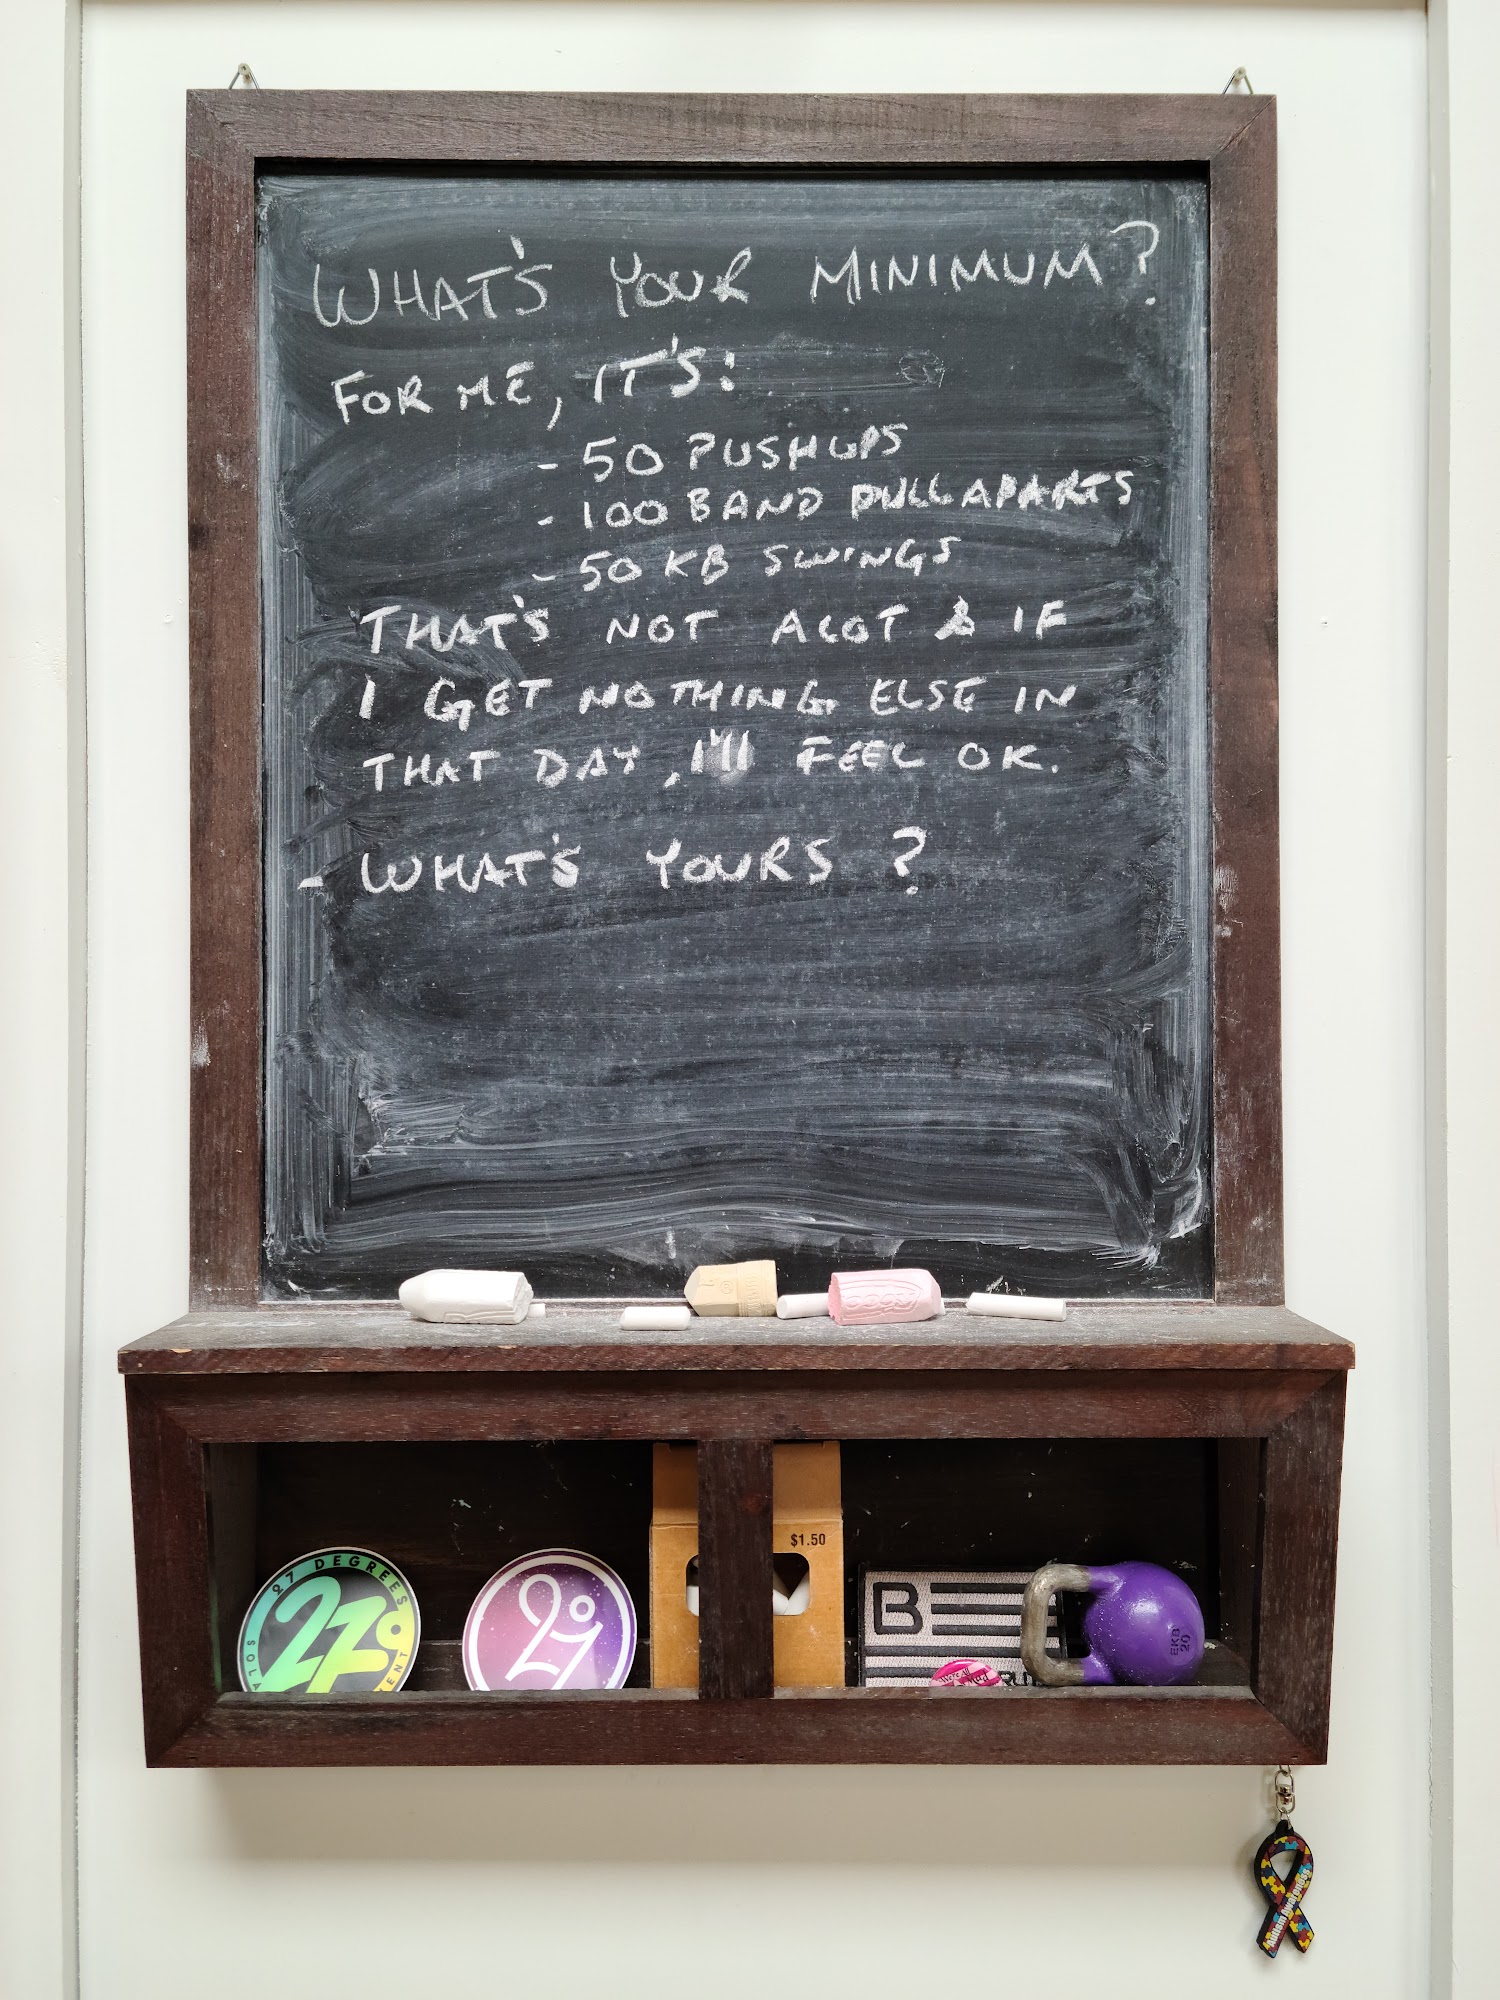 WHAT'S YOUR MINIMUM?
FOR ME, IT'S:
- 50 PUSHUPS
- 100 BAND PULLAPARTS
- 50 KB SWINGS
THAT'S NOT ALOT & IF
I GET NOTHING ELSE IN
THAT DAY, I'll FEEL OK.
- WHAT'S YOURS?
27 DEGREES
27°
27°
$1.50
B
EKB
20
Autism Awareness